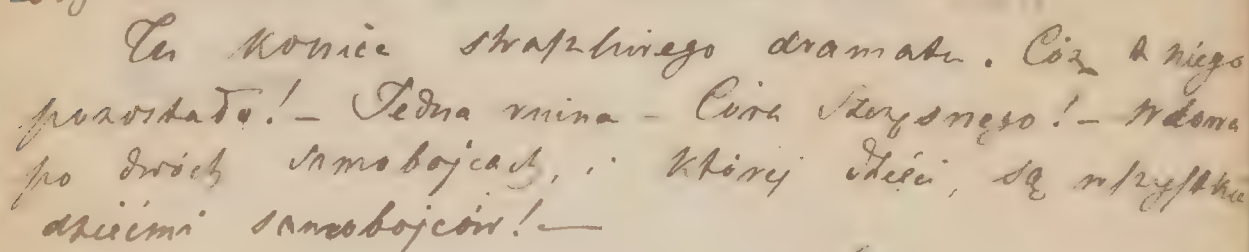 Tu koniec straszliwego dramatu. Cóż z niego
pozostało! – Jedna ruina – Córa Szczęsnego! – Wdowa
po dwóch samobójcach, i której dzieci, są wszystkie
dziećmi samobójców! —